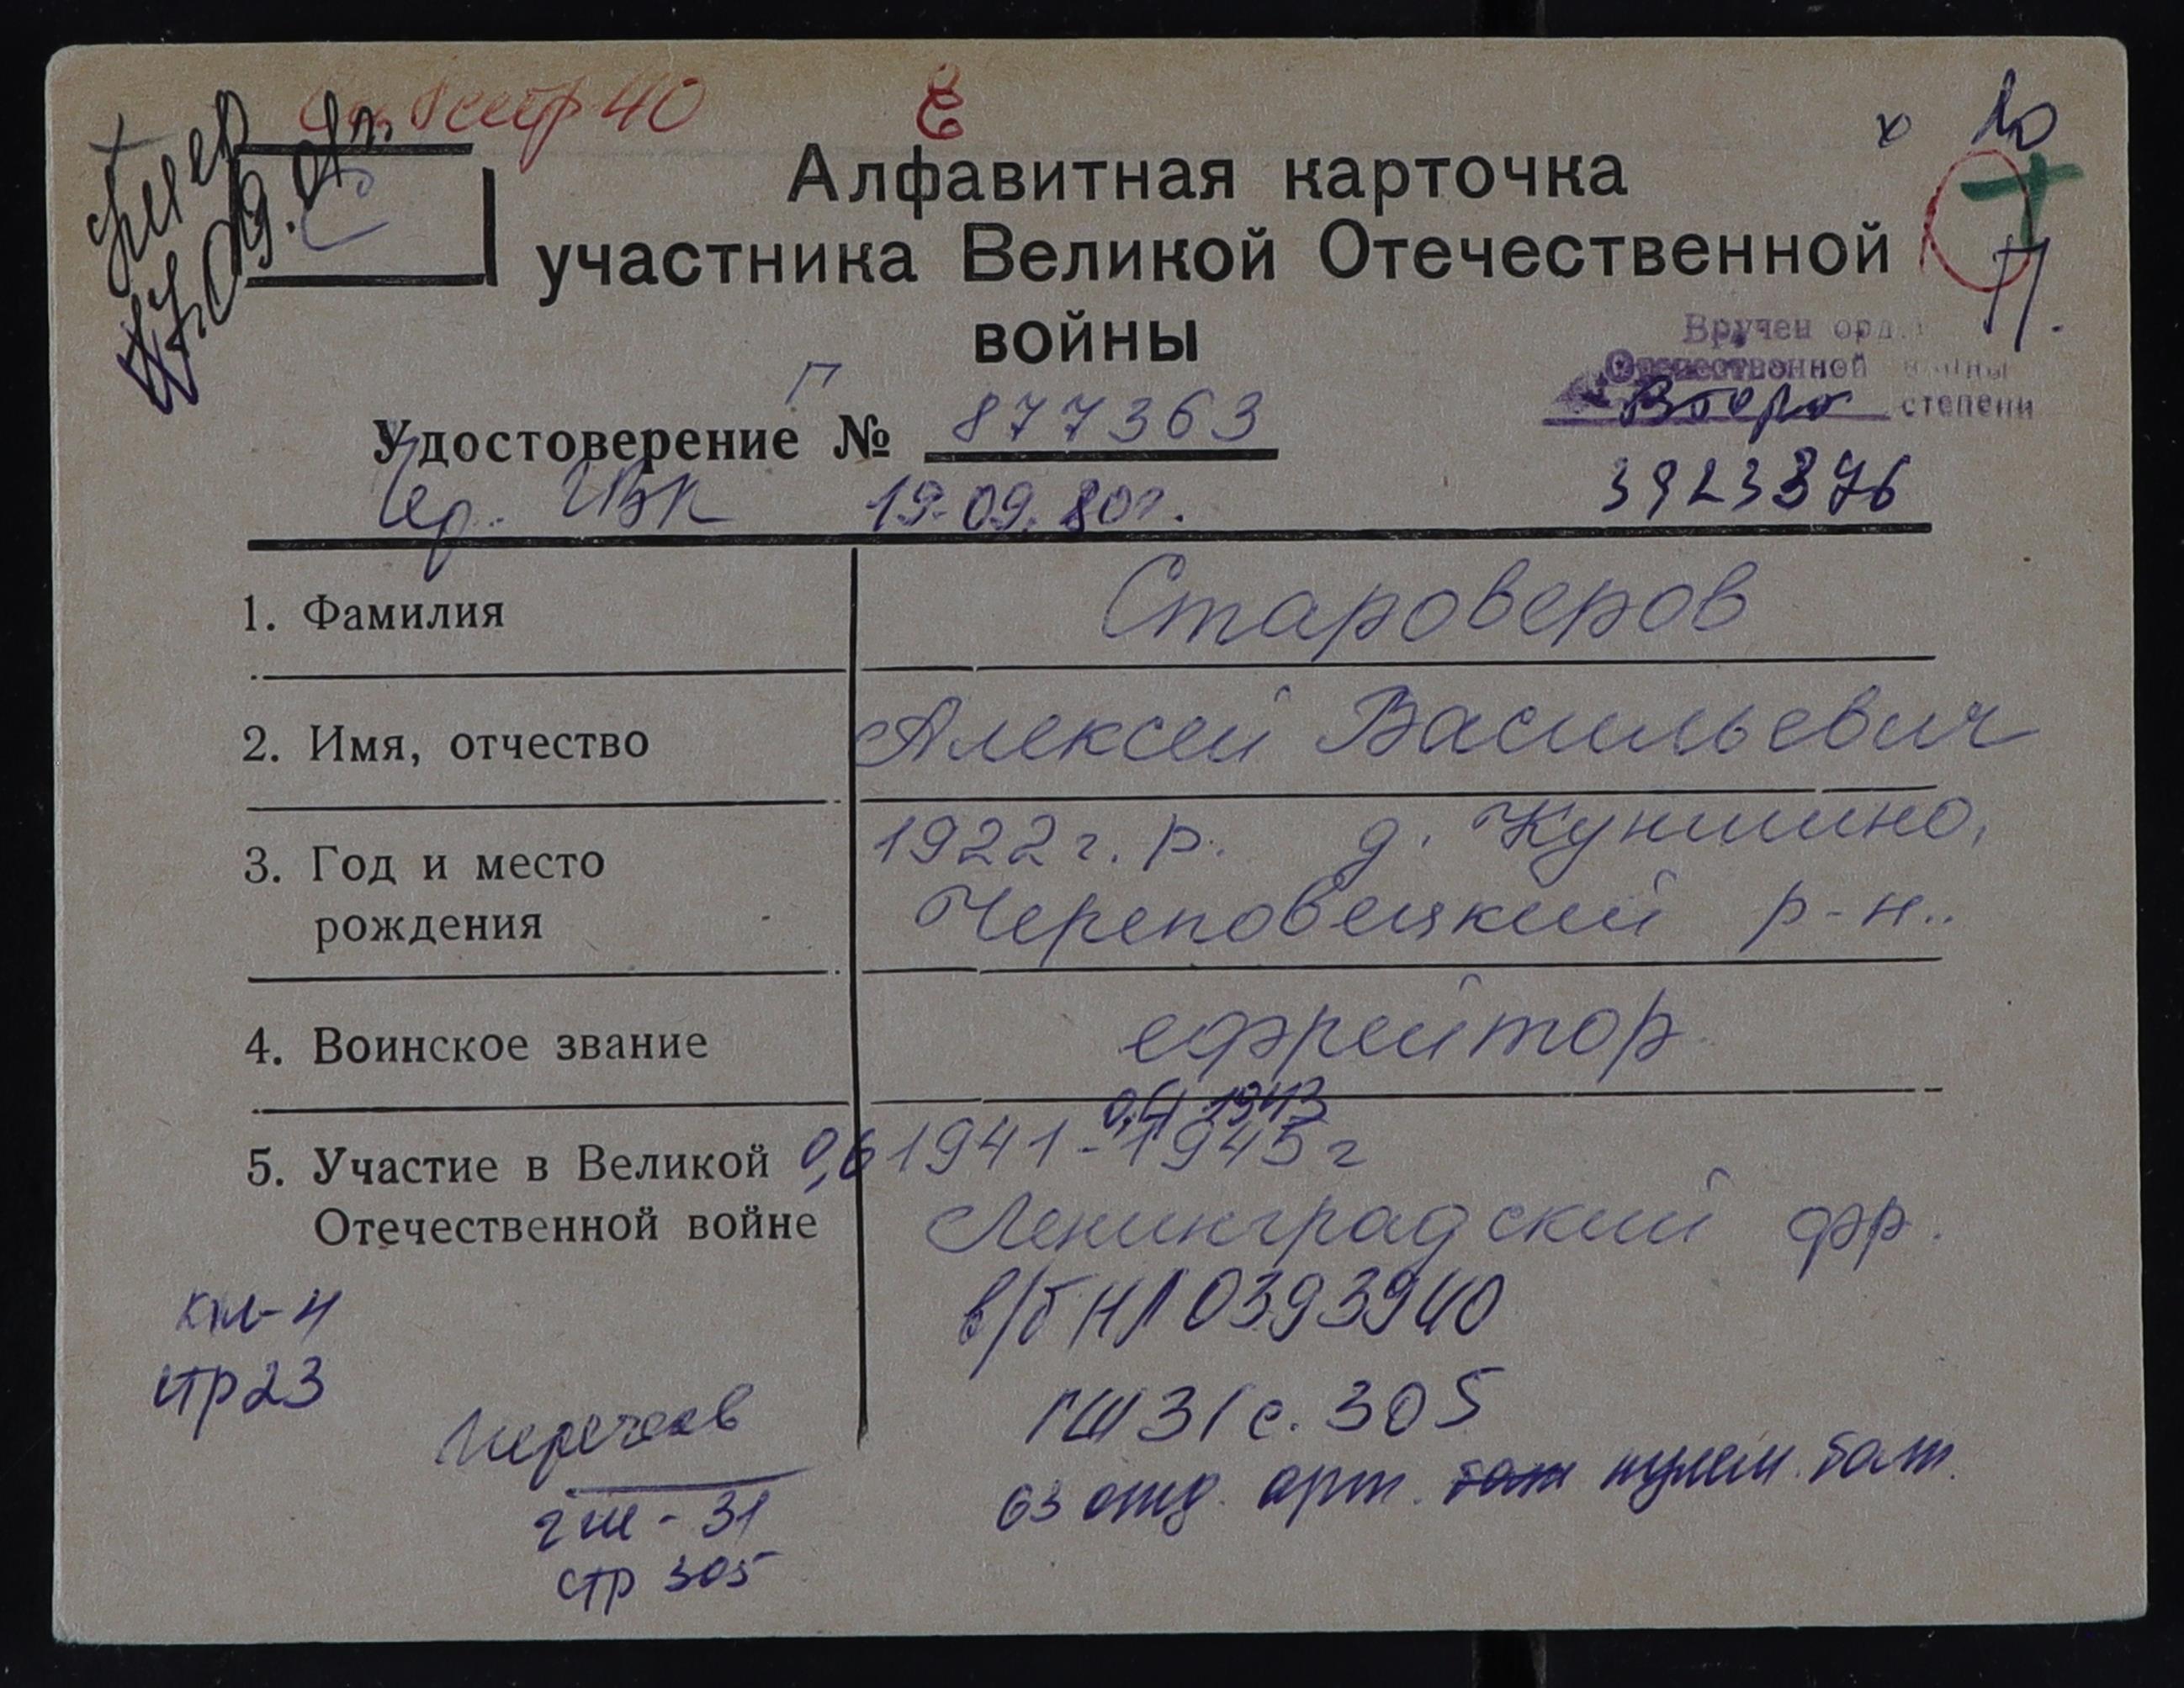 стр 40
Е
Ю
Алфавитная карточка
участника Великой Отечественной
войны
П.
Вручен орд.
Отечественной войны
степени
Г
Удостоверение № 877363
3923376
Чер. ГВК 19.09.80г.
1. Фамилия Староверов
2. Имя, отчество Алексей Васильевич
3. Год и место рождения 1922 г. р. д. Куншино,
Череповецкий р-н..
4. Воинское звание ефрейтор
04 1943
5. Участие в Великой Отечественной войне 0,6 1941-1945 г
Ленинградский фр.
в/б НЛ 0393940
ГШ 31 с. 305
63 отд. арт. бат пулем. бат.
кн-4
стр 23
Перечень
гш-31
стр 305